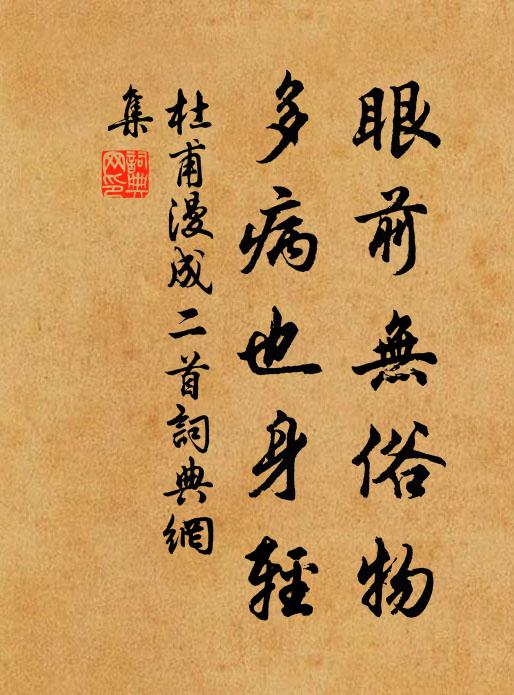 眼前無俗物
多病也身輕
杜甫漫成二首詞典網
集
詞典
网印